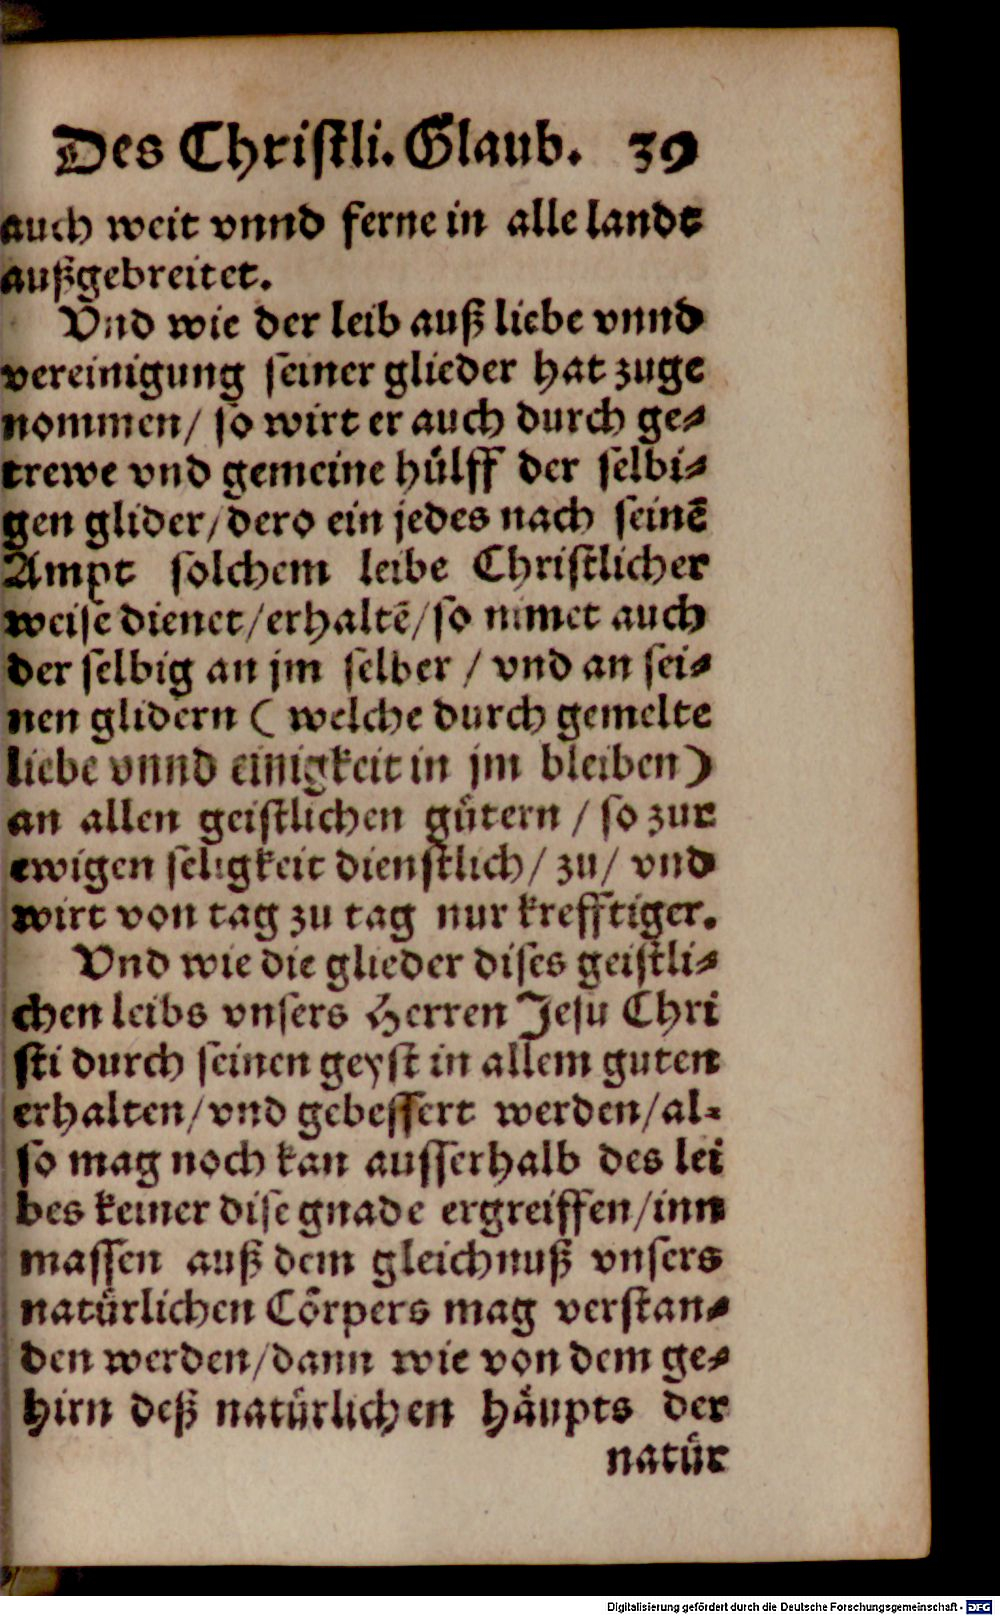 Des Christli. Glaub. 39
auch weit vnnd ferne in alle landt
außgebreitet.
Vnd wie der leib auß liebe vnnd
vereinigung seiner glieder hat zuge
nommen/ so wirt er auch durch ge⸗
trewe vnd gemeine hülff der selbi⸗
gen glider/dero ein jedes nach seinē
Ampt solchem leibe Christlicher
weise dienet/erhaltē/so nimet auch
der selbig an jm selber / vnd an sei⸗
nen glidern ( welche durch gemelte
liebe vnnd einigkeit in jm bleiben)
an allen geistlichen gütern / so zur
ewigen seligkeit dienstlich/ zu/ vnd
wirt von tag zu tag nur krefftiger.
Vnd wie die glieder dises geistli⸗
chen leibs vnsers Herren Jesu Chri
sti durch seinen geyst in allem guten
erhalten/vnd gebessert werden/al⸗
so mag noch kan ausserhalb des lei
bes keiner dise gnade ergreiffen/inn
massen auß dem gleichnuß vnsers
natürlichen Cörpers mag verstan⸗
den werden/dann wie von dem ge⸗
hirn deß natürlichen häupts der
natür
Digitalisierung gefördert durch die Deutsche Forschungsgemeinschaft - DFG